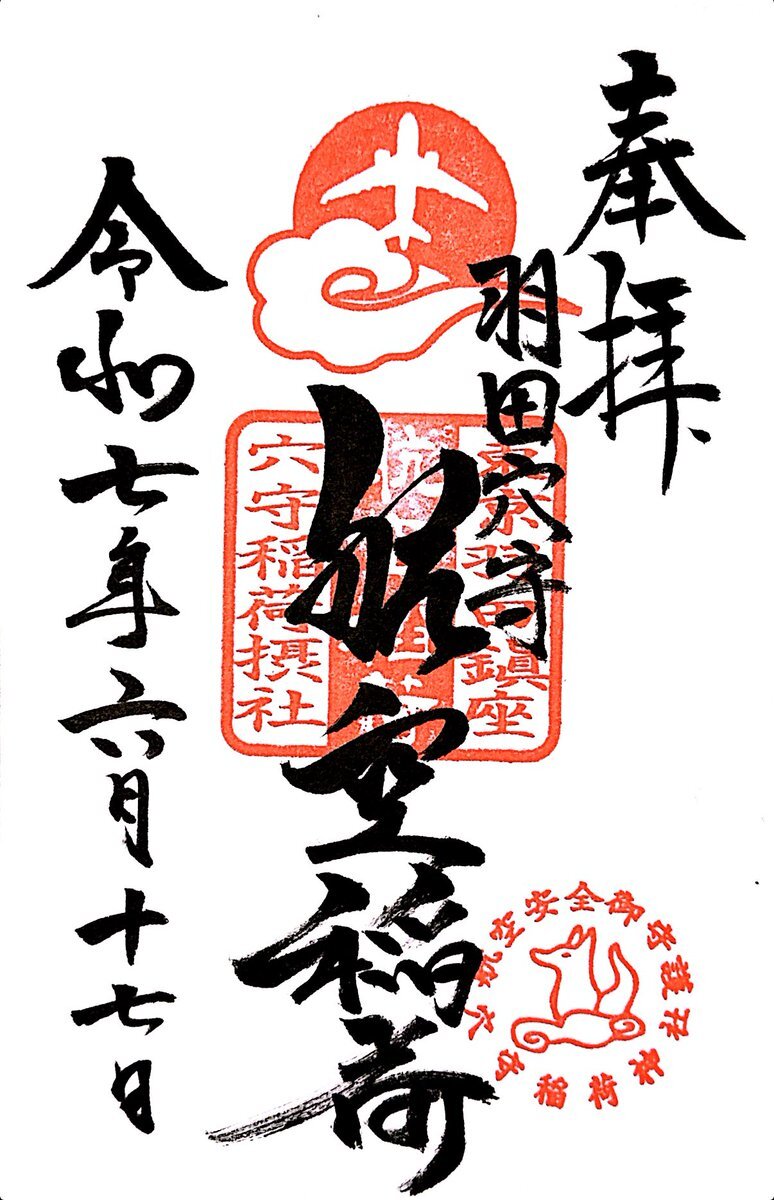 奉拝
羽田穴守
航空稲荷
令和七年六月十七日
東京羽田鎮座
航空稲荷
穴守稲荷摂社
安全御守護
稲荷